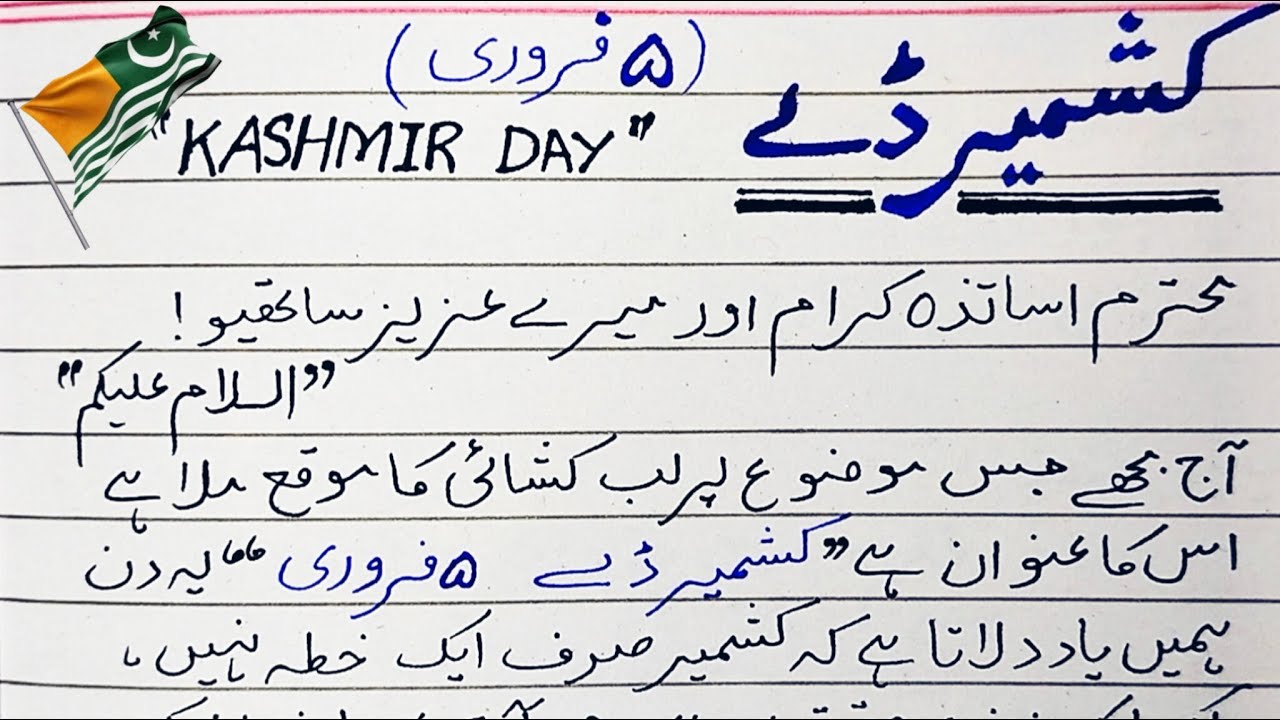 کشمیر ڈے
(۵ فروری)
"KASHMIR DAY"
محترم اساتذہ کرام اور میرے عزیز ساتھیو!
”السلام علیکم“
آج مجھے جس موضوع پر لب کشائی کا موقع ملا ہے
اس کا عنوان ہے ”کشمیر ڈے ۵ فروری“ یہ دن
ہمیں یاد دلاتا ہے کہ کشمیر صرف ایک خطہ نہیں،